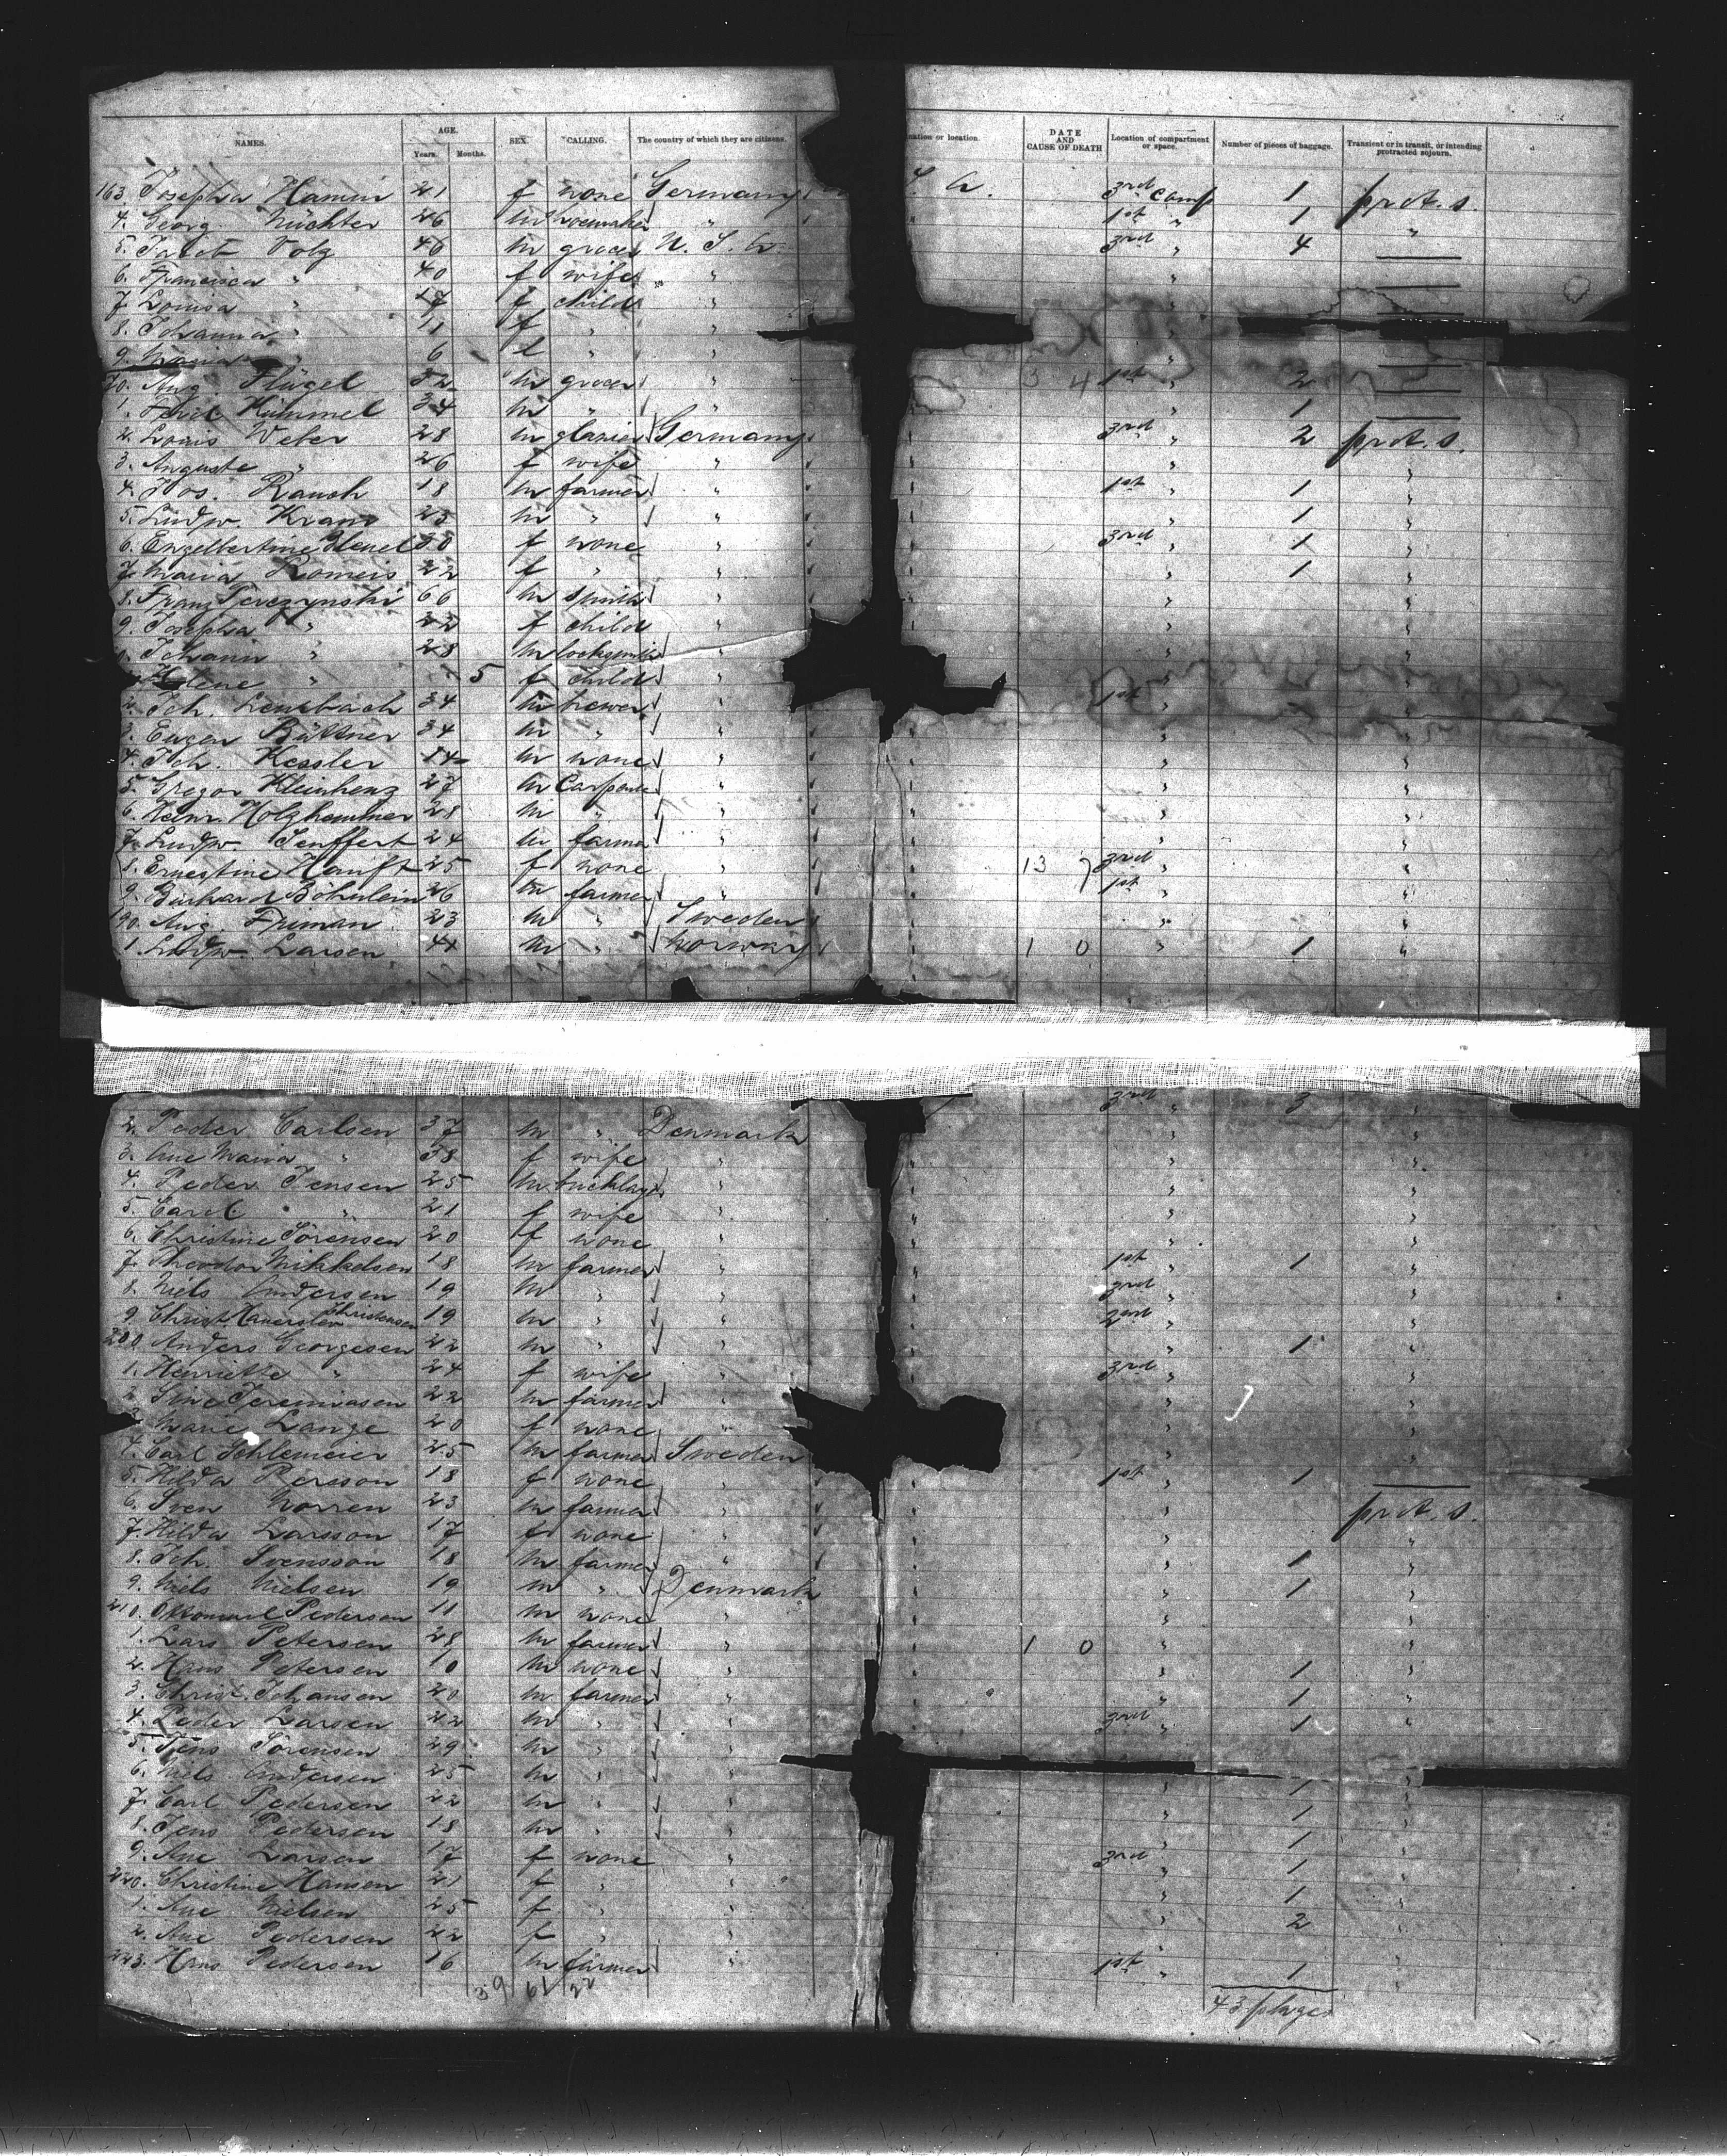 NAMES. AGE. Years. Months. SEX. CALLING. The country of which they are citizens. ation or location. DATE AND CAUSE OF DEATH Location of compartment or space. Number of pieces of baggage. Transient or in transit, or intending protracted sojourn.
163. Josepha Hamm 21 f none Germany S. A. 3rd Comp 1 prot. s.
4. Georg Nüchter 26 m shoemaker " " 1st " 1 "
5. Jacob Volz 46 m grocer U. S. A. 3rd " 4
6. Francisca " 40 f wife " "
7. Louisa " 17 f child " "
8. Johanna " 11 f " "
9. Maria " 6 f " " "
70. Aug. Flügel 32 m grocer " 3 4 1st " 2
1. Ferd. Hümmel 34 m " " " 1
2. Louis Weber 28 m glazier Germany 3rd " 2 prot. s.
3. Auguste " 26 f wife " " "
4. Jos. Rausch 18 m farmer " 1st " 1 "
5. Ludw. Kram 23 m " " " 1 "
6. Engelbertine Henel 30 f none " 3rd " 1 "
7. Maria Romeis 22 f " " " 1 "
8. Franz 66 m smith " " "
9. Josepha " 22 f child " " "
Johann " 28 m locksmith " " "
Helene " 5 f child " " "
2. Joh. Lensbach 34 m brewer " 1st " "
3. Eugen Büttner 34 m " " " "
4. Joh. Kessler 14 m none " " "
5. Gregor Kleinhenz 27 m Carpenter " " "
6. Heinr. Holzhammer 28 m " " " "
7. Ludw. Senffert 24 m farmer " " "
8. Ernestine Hanft 25 f none " 13 7 3rd " "
9. Burkard Böhnlein 26 m farmer " 1st " "
190. Aug. Fruman 23 m " Sweden " "
1. Ludw. Larsen 41 m " Norway 1 0 " 1 "
3rd " 3 "
2. Peder Carlsen 37 m " Denmark " "
3. Ane Maria " 38 f wife " " "
4. Peder Jensen 25 m bricklayer " " "
5. Carol " 21 f wife " " "
6. Christine Sörensen 20 f none " " "
7. Theodor Mikkelsen 18 m farmer " 1st " 1 "
8. Niels Andersen 19 m " " 3rd " "
9. Christ. Haverslev Christensen 19 m " " 2nd " "
200. Anders Georgesen 22 m " " " 1 "
1. Henriette " 24 f wife " 3rd " "
2. Sine Jeremiasen 22 m farmer " " "
Marie Lange 20 f none " " "
4. Carl Schlemeier 25 m farmer Sweden " "
5. Hilda Persson 18 f none " 1st " 1
6. Sven Norren 23 m farmer " " prot. s.
7. Hilda Larsson 17 f none " " "
8. Joh. Svensson 18 m farmer " " 1 "
9. Niels Nielsen 19 m " Denmark " 1 "
210. Pedersen 11 m none " " "
1. Lars Petersen 28 m farmer " 1 0 " "
2. Hans Petersen 10 m none " " 1 "
3. Christ. Johansen 20 m farmer " " 1 "
4. Peder Larsen 22 m " " 3rd " 1 "
5. Jens Sörensen 29 m " "
6. Niels Andersen 25 m " " 1 "
7. Carl Pedersen 22 m " " " 1 "
8. Jens Pedersen 18 m " " " 1 "
9. Ane Larsen 17 f none " 3rd " 1 "
220. Christine Hansen 21 f " " " 1 "
1. Ane Nielsen 25 f " " " 2 "
2. Ane Pedersen 22 f " " "
223. Hans Pedersen 16 m farmer " 1st " 1 "
39 61 22
43 pkges